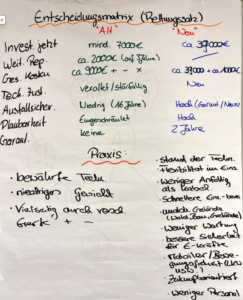 Entscheidungsmatrix (Rettungssatz)
"Alt" "Neu"
Invest. jetzt mind. 7000€ ca. 37000€
Weit. Rep. ca. 2000€ (auf Jahre)
Ges. Kosten ca. 9000€ + - x ca. 37000
Tech. Zust. veraltet/störanfällig Neu
Ausfallsicher. Niedrig (16 Jahre) Hoch (Garant/Neu)
Planbarkeit Eingeschränkt Hoch
Garant. keine 2 Jahre
Praxis:
· bewährte Techn.
· niedriges Gewicht
· Vielseitig durch versch.
Gerät + -
· stand der Techn.
· Flexibilität im Eins.
· Weniger Anfällig
als Kabel
· Schnellere
(Wald, Bau, Gelände)
· Weniger Wartung
· bessere Sicherheit
für E-Kräfte
· Mobiler/
· Zukunftsorientiert
· weniger Personal